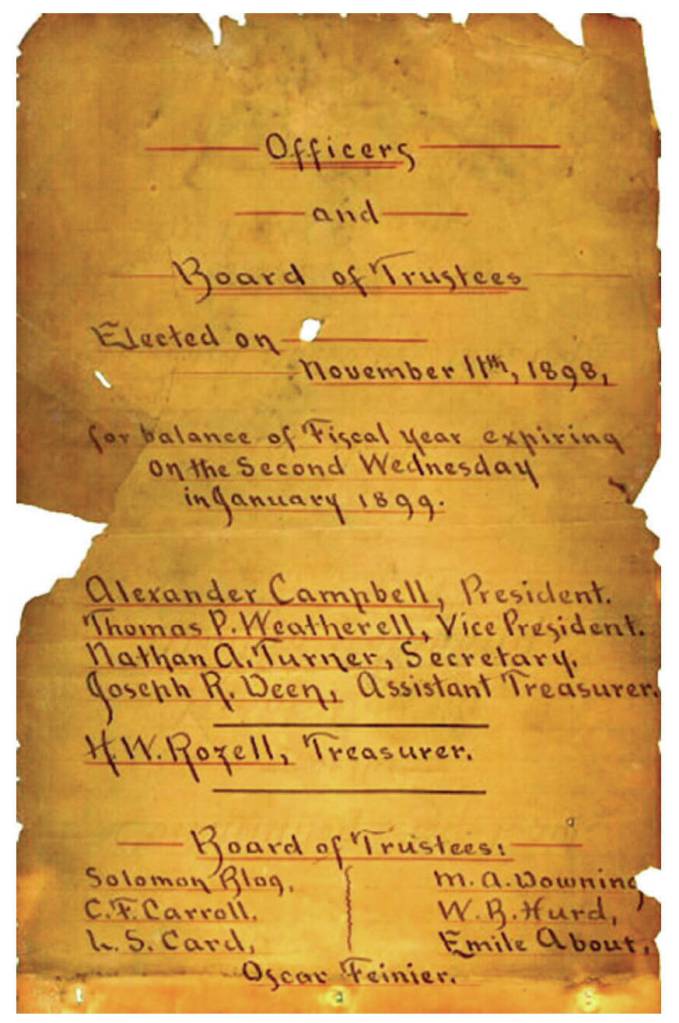 Officers
and
Board of Trustees
Elected on
November 11th, 1898,
for balance of Fiscal year expiring
on the Second Wednesday
in January 1899.
Alexander Campbell, President.
Thomas P. Weatherell, Vice President.
Nathan A. Turner, Secretary.
Joseph R. Deen, Assistant Treasurer.
H.W. Rozell, Treasurer.
Board of Trustees:
Solomon Blog,
M. A. Downing
C. F. Carroll,
W. B. Hurd,
L. S. Card,
Emile About,
Oscar Feinier.